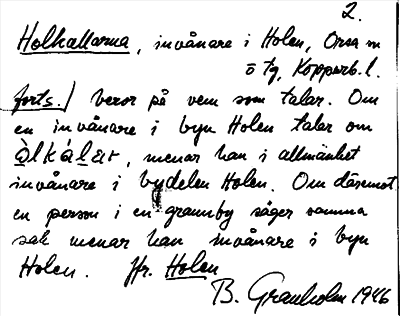 2.
Holkallarna, invånare i Holen, Orsa sn
ö tg, Kopparb. l.
forts./ beror på vem som talar. Om
en invånare i byn Holen talar om
òlkálar, menar han i allmänhet
invånare i bydelen Holen. Om däremot
en person i en grannby säger samma
sak menar han invånare i byn
Holen. Jfr. Holen
B. Granholm 1946